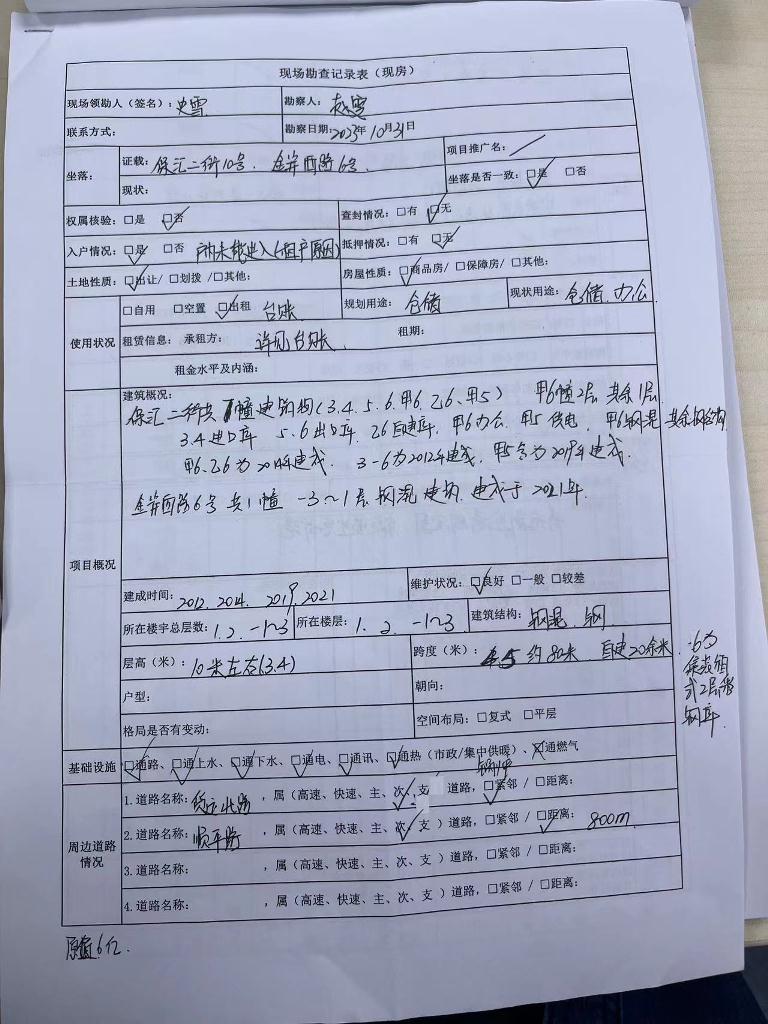 现场勘查记录表（现房）
现场领勘人（签名）：史雪 勘察人：
联系方式： 勘察日期：2023年10月31日
坐落： 证载：保汇二街10号、金羊西路6号 项目推广名：/
现状： 坐落是否一致：☑是 □否
权属核验：□是 ☑否 查封情况：□有 ☑无
入户情况：☑是 □否 (租户原因) 抵押情况：□有 ☑无
土地性质：☑出让/ □划拨 /□其他： 房屋性质：☑商品房/ □保障房/ □其他：
使用状况 □自用 □空置 ☑出租 台账 规划用途：仓储 现状用途：仓储、办公
租赁信息： 承租方： 详见台账 租期：
租金水平及内涵：
项目概况 建筑概况：
保汇二街共7幢建筑物(3.4.5.6.甲6.乙6.甲5) 甲6幢2层 其余1层
3.4进口库 5.6出口库 乙6自建库、甲6办公、甲5供电、甲6钢混 其余钢结构
甲6、乙6为2014年建成、3-6为2012年建成、甲5为2019年建成、
金羊西路6号共1幢 -3~1层 钢混建筑、建成于2021年、
建成时间：2012、2014、2019、2021 维护状况：☑良好 □一般 □较差
所在楼宇总层数：1、2、-1~3 所在楼层：1、2、-1~3 建筑结构：钢混、钢
层高（米）：10米左右(3.4) 跨度（米）：约80米 自建20余米
户型： 朝向：
格局是否有变动： 空间布局：□复式 □平层
基础设施 ☑通路、☑通上水、☑通下水、☑通电、☑通讯、☑通热（市政/集中供暖）、☒通燃气
锅炉
周边道路情况 1.道路名称： ，属（高速、快速、主、次、支 道路，☑紧邻 / □距离：
2.道路名称：顺平路 ，属（高速、快速、主、次、支 ）道路，□紧邻 / ☑距离：800m
3.道路名称： ，属（高速、快速、主、次、支 ）道路，□紧邻 / □距离：
4.道路名称： ，属（高速、快速、主、次、支 ）道路，□紧邻 / □距离：
6亿.